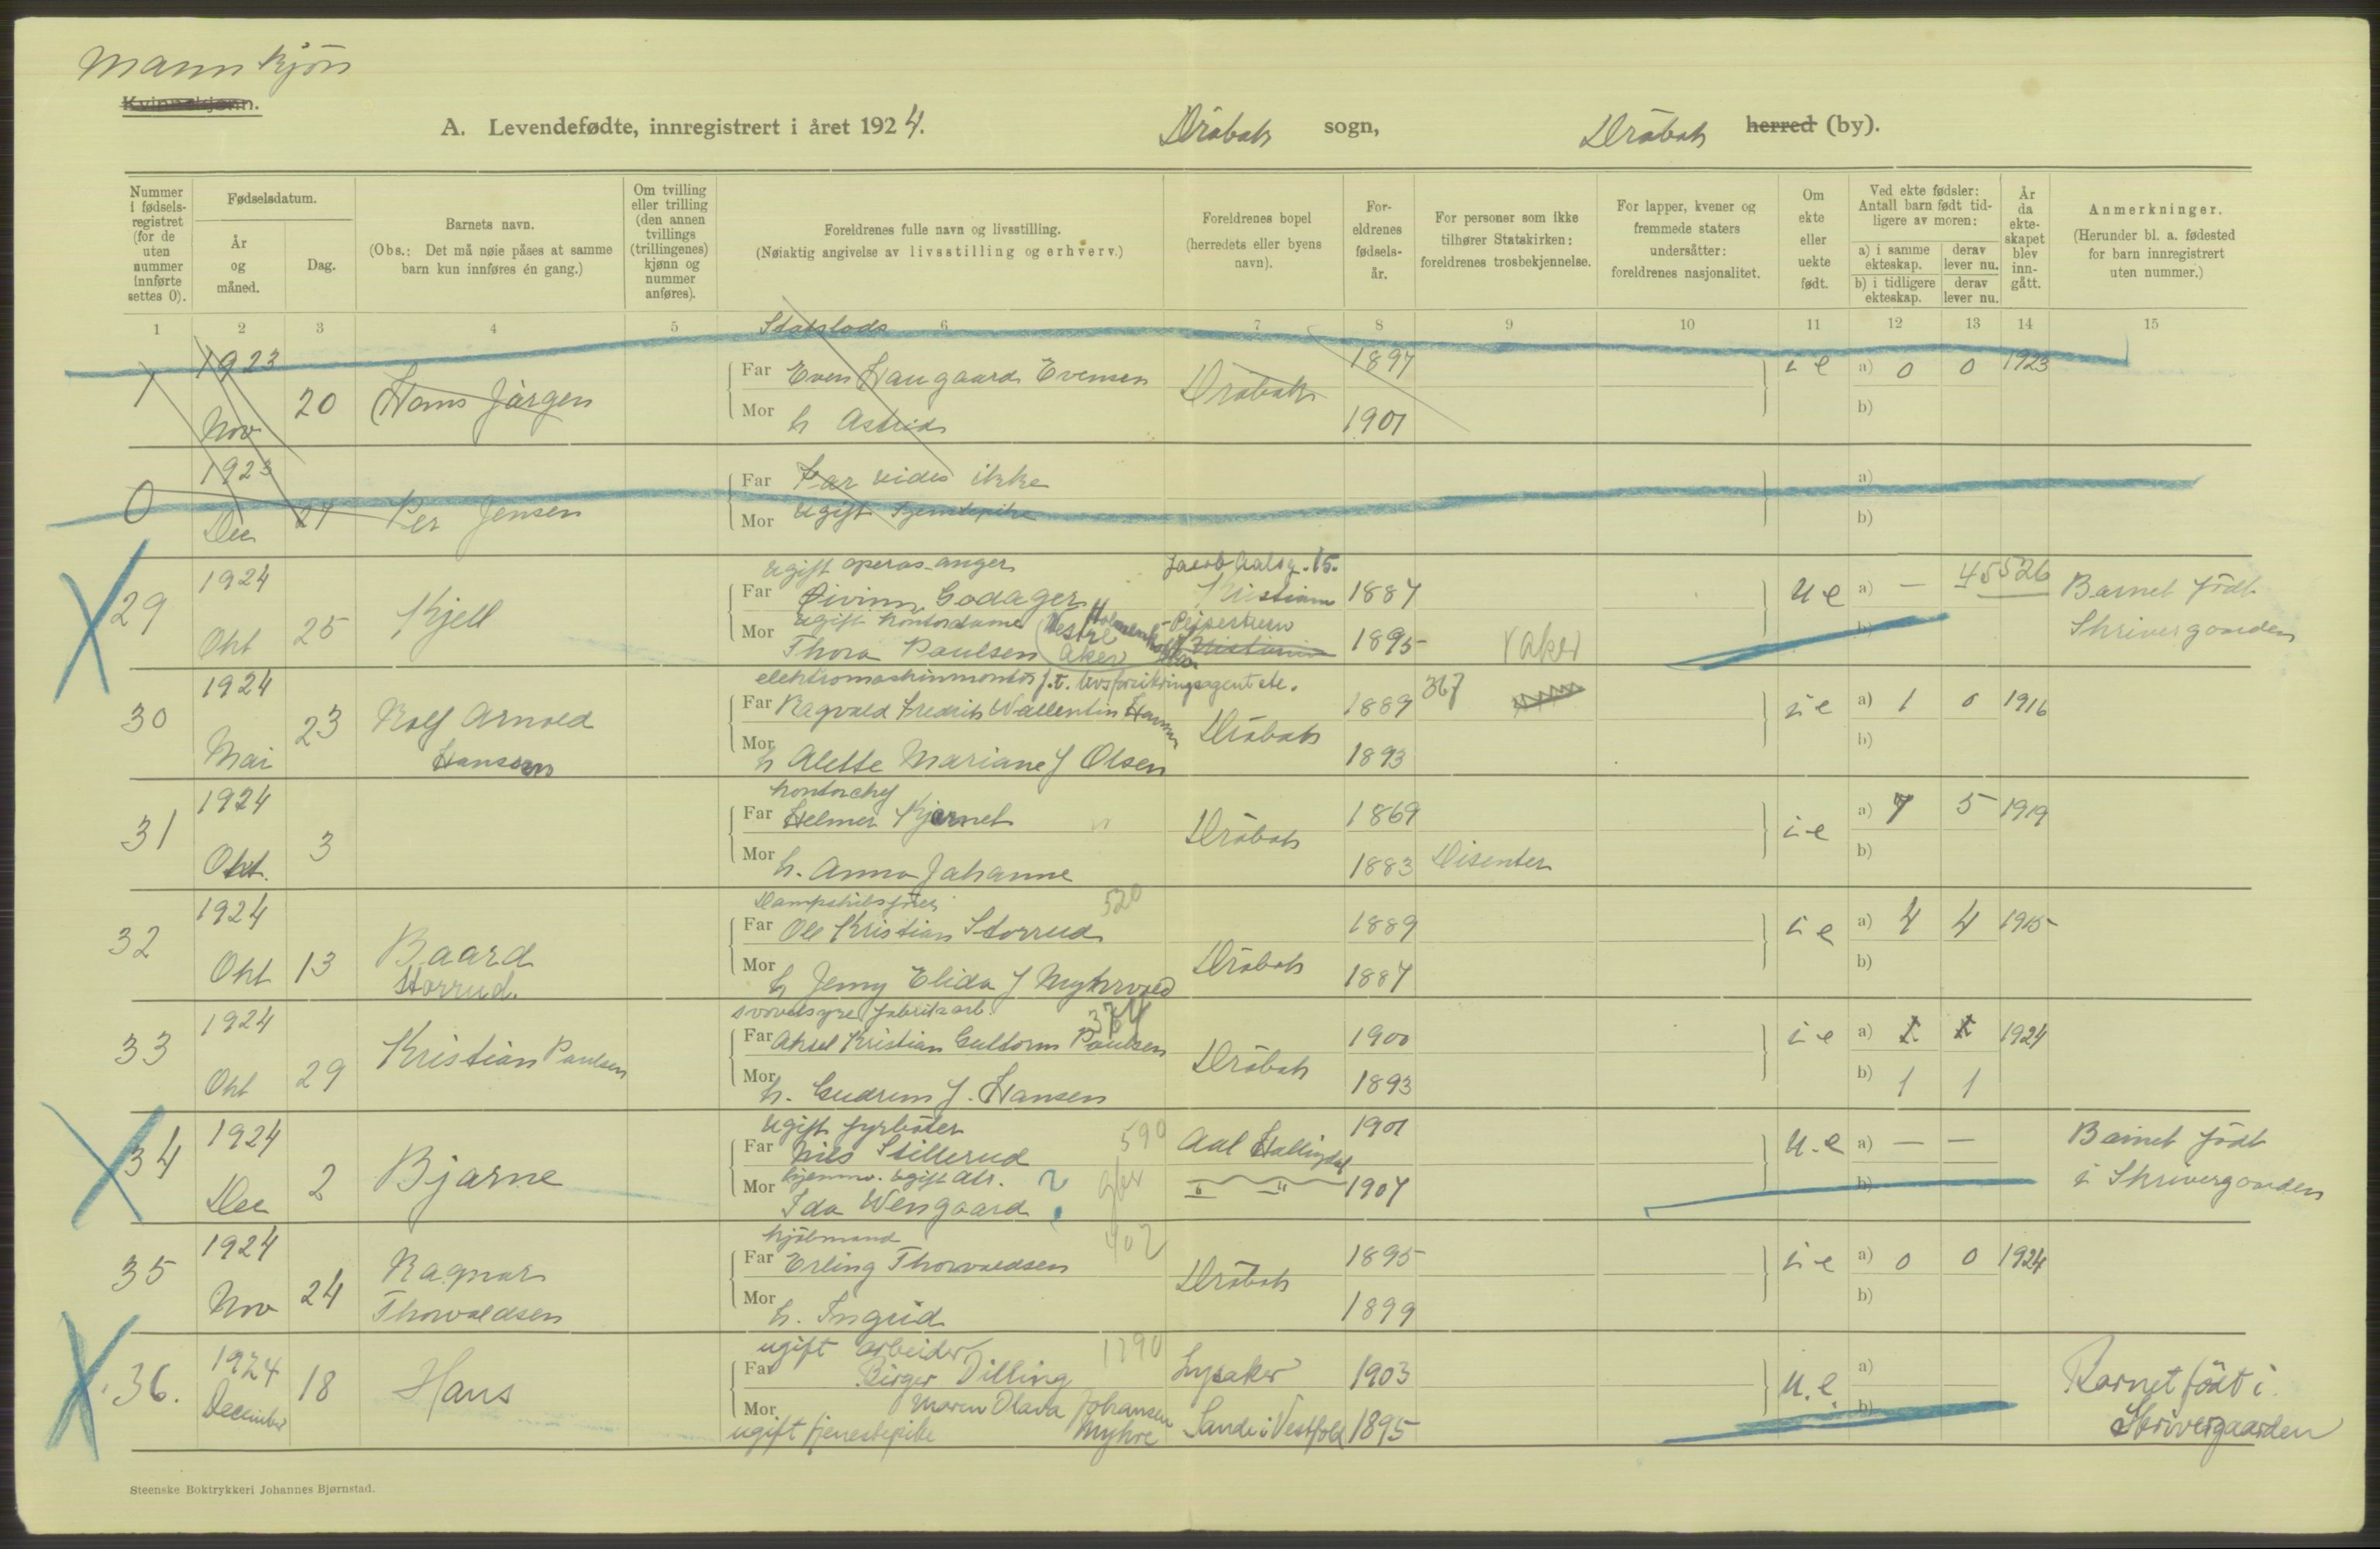 Mannkjøn
Kvinnekjønn.
A. Levendefødte, innregistrert i året 1924. Drøbak sogn, Drøbak herred (by).
Nummer i fødsels-registret (for de uten nummer innførte settes 0).
Fødselsdatum.
År og måned.
Dag.
Barnets navn.
(Obs.: Det må nøie påses at samme barn kun innføres én gang.)
Om tvilling eller trilling (den annen tvillings (trillingenes) kjønn og nummer anføres).
Foreldrenes fulle navn og livsstilling.
(Nøiaktig angivelse av livsstilling og erhverv.)
Foreldrenes bopel (herredets eller byens navn).
For-eldrenes fødsels-år.
For personer som ikke tilhører Statskirken: foreldrenes trosbekjennelse.
For lapper, kvener og fremmede staters undersåtter: foreldrenes nasjonalitet.
Om ekte eller uekte født.
Ved ekte fødsler: Antall barn født tid-ligere av moren:
a) i samme ekteskap. derav lever nu.
b) i tidligere ekteskap. derav lever nu.
År da ekte-skapet blev inn-gått.
Anmerkninger.
(Herunder bl. a. fødested for barn innregistrert uten nummer.)
1 2 3 4 5 6 7 8 9 10 11 12 13 14 15
Statslods
1 1923 Nov 20 Hans Jørgen
Far Even Haugaard Evensen Drøbak 1897 i e a) 0 0 1923
Mor h Astrid 1901 b)
0 1923 Dec 27 Per Jensen
Far Far vides ikke a)
Mor ugift tjenestepike b)
ugift operasanger Jacob Aalsg. 15.
29 1924 Okt 25 Kjell
Far Øivinn Godager Kristiania 1887 u e a) — 45526 Barnet født
ugift kontordame
Mor Thora Paulsen Vestre Aker 1895 V aker b) Skrivergaarden
elektromaskinmontør f.t. livsforsikringsagent etc.
30 1924 Mai 23 Rolf Arnold Hanssen
Far Ragvald Fredrik Wallentin Hanssen Drøbak 1889 367 i e a) 1 0 1916
Mor h Alette Mariane f Olsen 1893 b)
kontorchef
31 1924 Okt. 3
Far Helmer Kjernet Drøbak 1869 i e a) 7 5 1919
Mor h. Anna Johanne 1883 Disenter b)
Dampskibsfører 520
32 1924 Okt 13 Baard Storrud.
Far Ole Kristian Storrud Drøbak 1889 i e a) 4 4 1915
Mor h Jenny Elida f Myhrvold 1887 b)
svovelsyre fabrikarb 374
33 1924 Okt 29 Kristian Paulsen
Far Aksel Kristian Guttorm Paulsen Drøbak 1900 i e a) 1924
Mor h. Gudrun f. Hansen 1893 b) 1 1
ugift fyrbøter 590
34 1924 Dec 2 Bjarne
Far Nils Stillerud Aal Hallingdal 1901 u. e a) — — Barnet født
hjemmev. ugift dtr. ?
Mor Ida Wengaard — " — 1907 b) i Skrivergaarden
kjøbmand 402
35 1924 Nov 24 Ragnar Thorvaldsen
Far Erling Thorvaldsen Drøbak 1895 i e a) 0 0 1924
Mor h. Ingrid 1899 b)
ugift arbeider 1790
36. 1924 December 18 Hans
Far Birger Dilling Lysaker 1903 u. e. a) Barnet født i
Mor Maren Olava Johansen Myhre Sande i Vestfold 1895 b) Skrivergaarden
ugift tjenestepike
Steenske Boktrykkeri Johannes Bjørnstad.